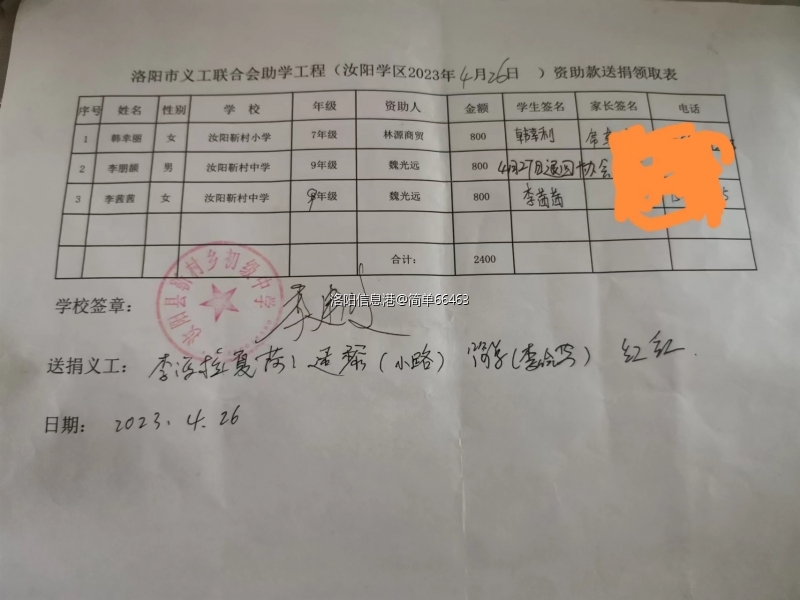 洛阳市义工联合会助学工程(汝阳学区2023年4月26日 )资助款送捐领取表
序号 姓名 性别 学 校 年级 资助人 金额 学生签名 家长签名 电话
1 韩幸丽 女 汝阳靳村小学 7年级 林源商贸 800
2 李朋颍 男 汝阳靳村中学 9年级 魏光远 800 4月27日退回协会
3 李茜茜 女 汝阳靳村中学 年级 魏光远 800 李茜茜
合计: 2400
汝阳县靳村乡初级中学
学校签章:
洛阳信息港@简单66463
送捐义工: (小路) 红红
日期: 2023.4.26